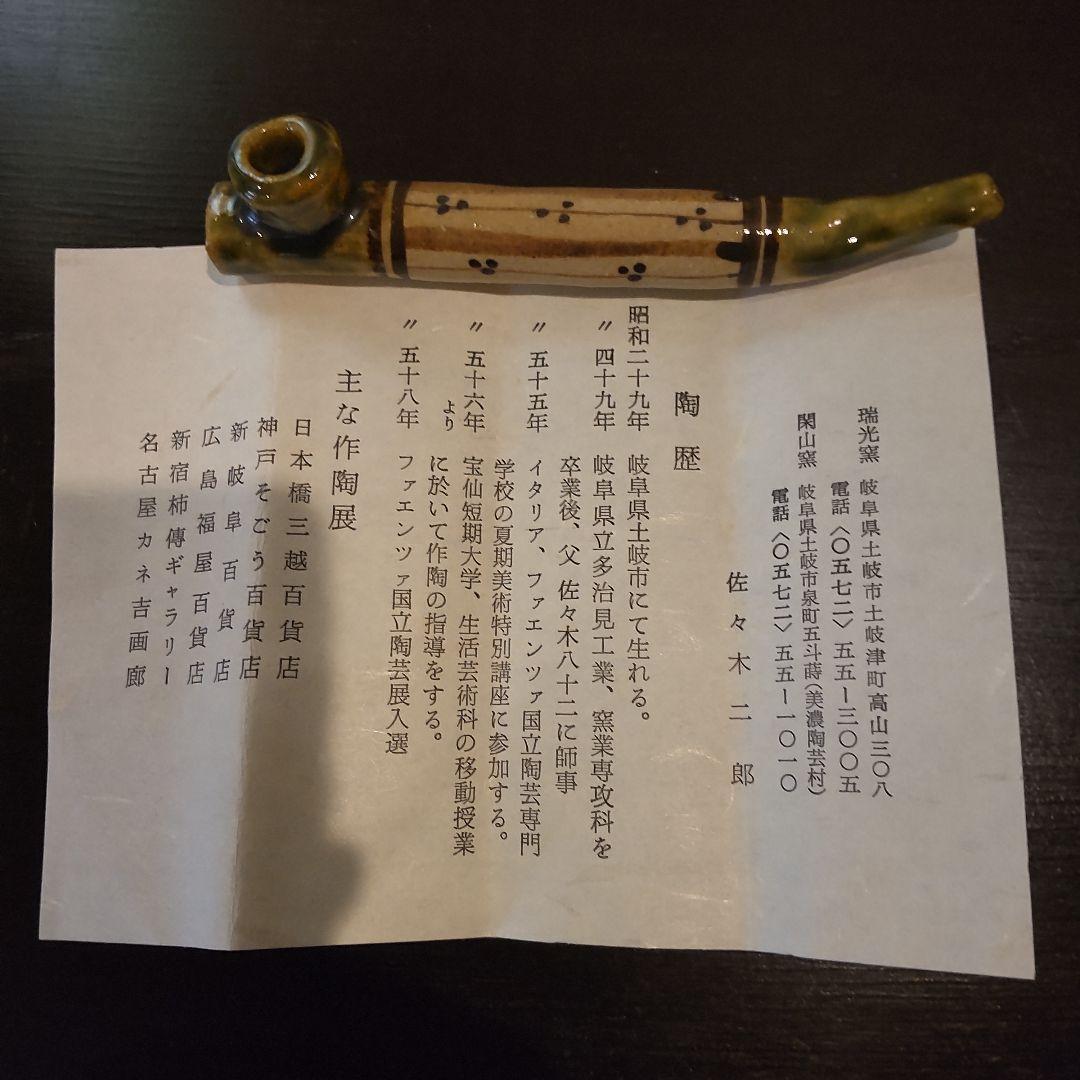 瑞光窯　岐阜県土岐市土岐津町高山三〇八
電話〈〇五七二〉五五ー三〇〇五
閑山窯　岐阜県土岐市泉町五斗蒔（美濃陶芸村）
電話〈〇五七二〉五五ー一〇一〇
佐々木二郎
陶歴
昭和二十九年　岐阜県土岐市にて生れる。
〃四十九年　岐阜県立多治見工業、窯業専攻科を
卒業後、父 佐々木八十二に師事
〃五十五年　イタリア、ファエンツァ国立陶芸専門
学校の夏期美術特別講座に参加する。
〃五十六年より　宝仙短期大学、生活芸術科の移動授業
に於いて作陶の指導をする。
〃五十八年　ファエンツァ国立陶芸展入選
主な作陶展
日本橋三越百貨店
神戸そごう百貨店
新岐阜百貨店
広島福屋百貨店
新宿柿傳ギャラリー
名古屋カネ吉画廊